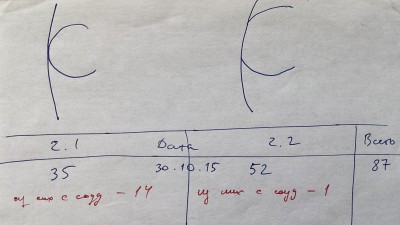 2.1 Дата 2.2 Всего
35 30.10.15 52 87
из них с - 14 из них с - 1